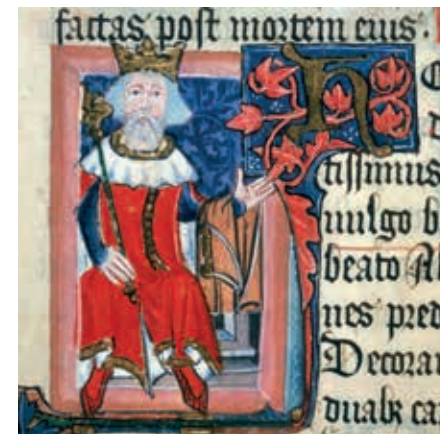 factas post mortem eius:
H
tissimus
uulgo b
beato Al
nes pred
Decorau
duabz ca